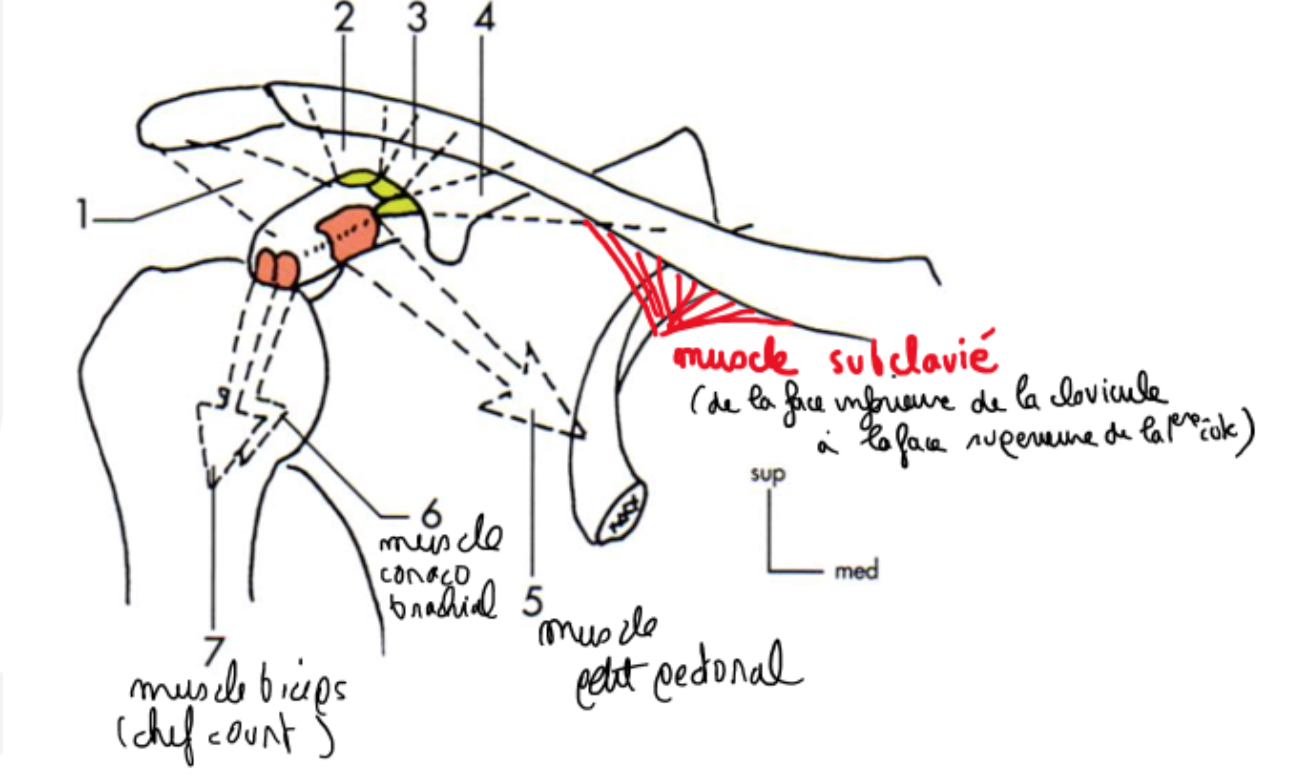 2 3 4
1
muscle subclavié
(de la face inférieure de la clavicule
à la face superieure de la 1ère côte)
sup
med
6
muscle
coraco
brachial
5
muscle
petit pectoral
7
muscle biceps
(chef court)